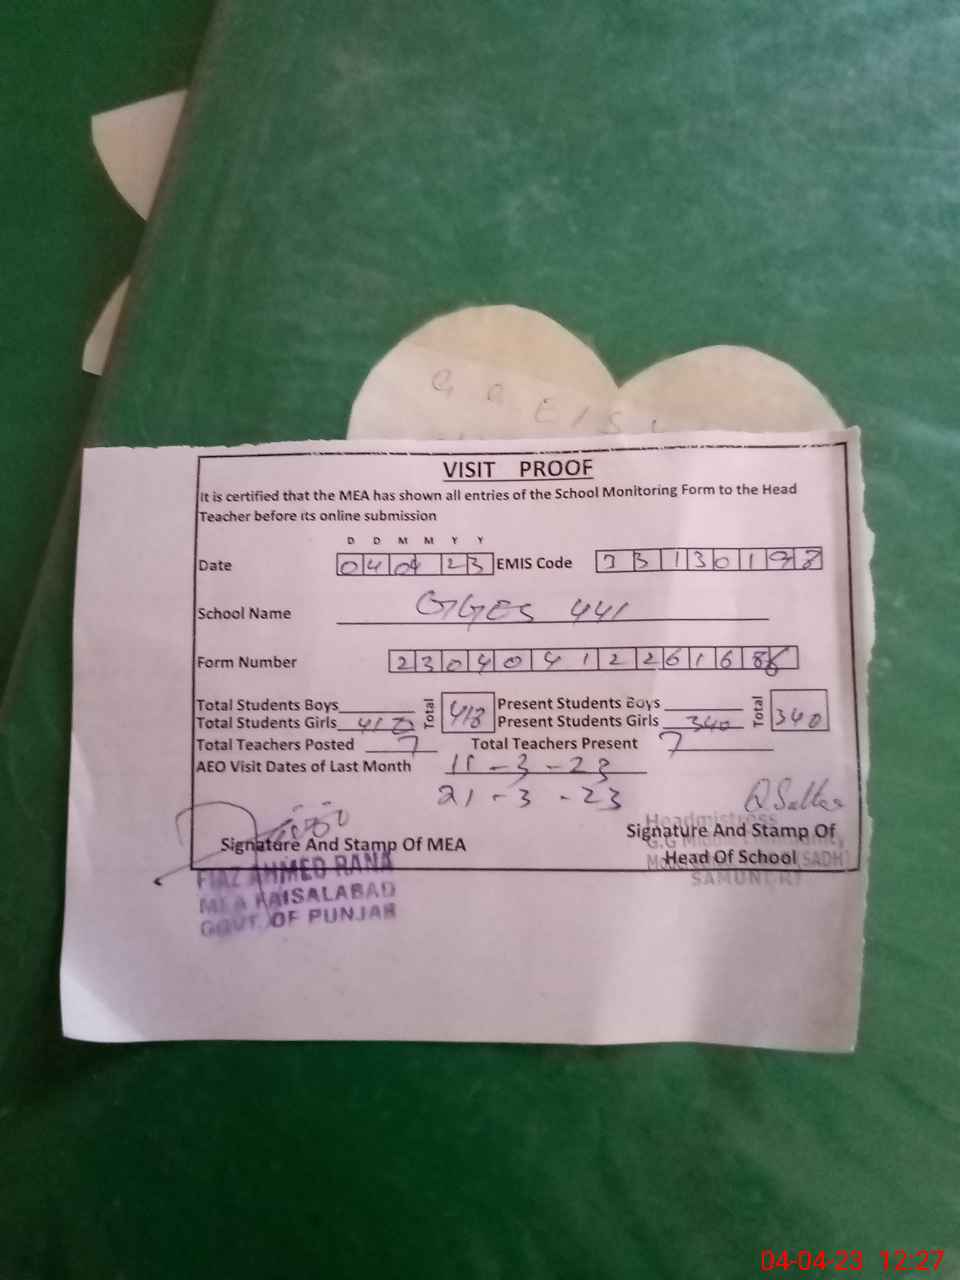 G G E I S
VISIT PROOF
It is certified that the MEA has shown all entries of the School Monitoring Form to the Head
Teacher before its online submission
D D M M Y Y
Date 04 04 23 EMIS Code 33130198
School Name GGES 441
Form Number 2304041226168
Total Students Boys Total 418 Present Students Boys Total 340
Total Students Girls 418 Present Students Girls 340
Total Teachers Posted 7 Total Teachers Present 7
AEO Visit Dates of Last Month 11-3-23
21-3-23
Signature And Stamp Of MEA Signature And Stamp Of
Head Of School
Headmistress
(SADH)
SAMUNDRI
FIAZ AHMED RANA
MEA FAISALABAD
GOVT. OF PUNJAB
04-04-23 12:27